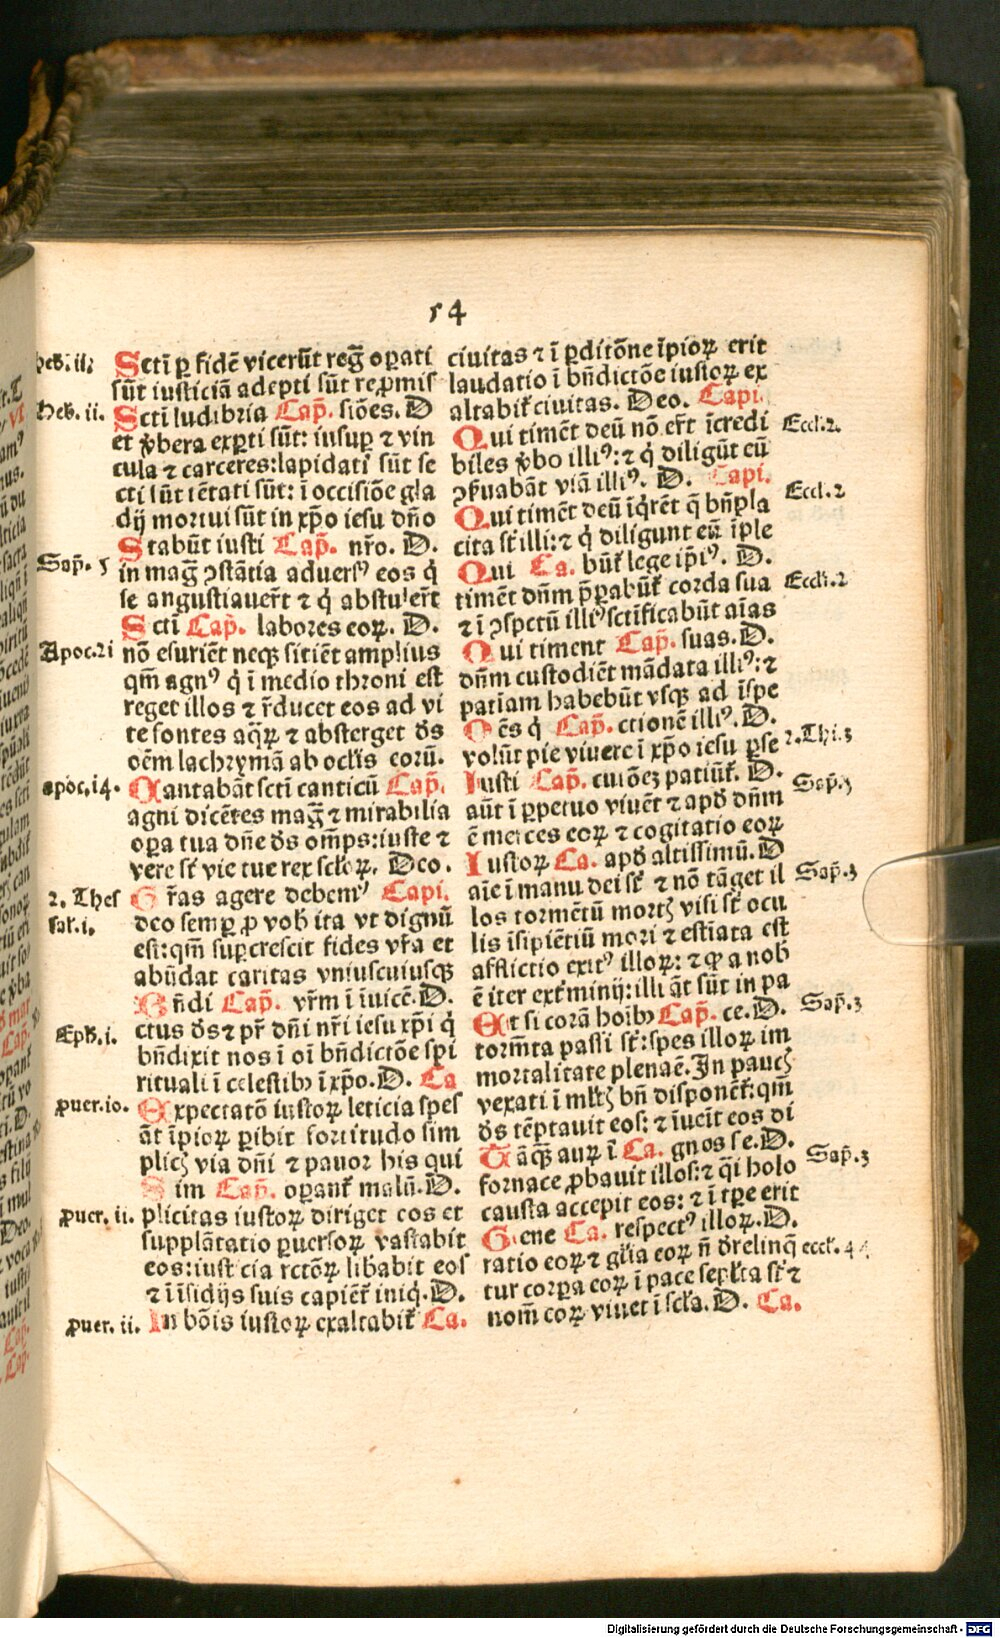 54
heb. ii.
Scti ꝑ fidē vicerūt reg̃ oꝑati
sūt iusticiā adepti sūt reꝓmis
heb. ii.
Scti ludibria Cap̃. siōes. D
et ꝟbera exꝑti sūt: insuꝑ ⁊ vin
cula ⁊ carceres: lapidati sūt se
cti sūt tētati sūt: ī occisiōe gla
dij mortui sūt in xp̄o iesu dn̄o
Stabūt iusti Cap̃. nr̄o. D.
Sap̃. 5
in mag̃ ꝯstātia aduersꝰ eos q̇
se angustiauer̄t ⁊ q̇ abstuler̄t
Scti Cap̃. labores eoꝝ. D.
Apoc. 21
nō esuriēt neqꝫ sitiēt amplius
qm̄ agnꝰ q̇ ī medio throni est
reget illos ⁊ r̄ducet eos ad vi
te fontes aq̄ꝝ ⁊ absterget ds̄
oēm lachrymā ab oclis̄ eorū.
apoc. 14.
Cantabāt scti canticū Cap̃.
agni dicētes mag̃ ⁊ mirabilia
oꝑa tua dn̄e ds̄ om̄ps: iuste ⁊
vere st̄ vie tue rex sclōꝝ. Deo.
2. Thes
sal. i.
Gr̄as agere debemꝰ Capi.
deo semꝑ ꝓ vob̄ ita vt dignū
est: qm̄ suꝑcrescit fides vr̄a et
abūdat caritas vniuscuiusqꝫ
Bn̄di Cap̃. vr̄m ī īuicē. D.
Eph̄. i.
ctus ds̄ ⁊ pr̄ dn̄i nr̄i iesu xp̄i q̇
bn̄dixit nos ī oī bn̄dictōe spi
rituali ī celestibꝫ ī xp̄o. D. Ca
ꝓuer. io.
Expectatō iustoꝝ leticia spes
āt īpioꝝ ꝑibit fortitudo sim
plicꝫ via dn̄i ⁊ pauor his qui
Sim Cap̃. oꝑant̄ malū. D.
ꝓuer. ii.
plicitas iustoꝝ diriget eos et
supplātatio ꝑuersoꝝ vastabit
eos: iusticia rctōꝝ lib̄abit eos
⁊ ī īsidijs suis capiēt̄ iniq̇. D.
ꝓuer. ii.
In bōis iustoꝝ exaltabit̄ Ca.
ciuitas ⁊ ī ꝑditōne īpioꝝ erit
laudatio ī bn̄dictōe iustoꝝ ex
altabit̄ ciuitas. Deo. Capi.
Eccl. 2.
Qui timēt deū nō er̄t īcredi
biles ꝟbo illiꝰ: ⁊ q̇ diligūt eū
ꝯẜuabāt viā illiꝰ. D. Capi.
Eccl. 2
Qui timēt deū īq̇rēt q̄ bn̄pla
cita st̄ illi: ⁊ q̇ diligunt eū īple
Qui Ca. būt̄ lege ip̄iꝰ. D.
Eccli. 2
timēt dn̄m p̄ꝑabūt̄ corda sua
⁊ ī ꝯspectū illiꝰ sctificabūt aīas
Qui timent Cap̃. suas. D.
dn̄m custodiēt mādata illiꝰ: ⁊
patiam habebūt vsqꝫ ad īspe
Oēs q̇ Cap̃. ctionē illiꝰ. D.
2. Thi. 3
volūt pie viuere ī xp̄o iesu ꝑse
Iusti Cap̃. cutōeꝫ patiūt̄. D.
Sap̃. 5
aūt ī ꝑpetuo viuēt ⁊ apd̄ dn̄m
ē merces eoꝝ ⁊ cogitatio eoꝝ
Iustoꝝ Ca. apd̄ altissimū. D
Sap̃. 3
aīe ī manu dei st̄ ⁊ nō tāget il
los tormētū mortꝫ visi st̄ ocu
lis īsipiētiū mori ⁊ estīata est
afflictio exitꝰ illoꝝ: ⁊ qꝫ a nob̄
ē iter ext̄minij: illi āt sūt in pa
Sap̃. 3
Et si corā hoībꝫ Cap̃. ce. D.
torm̄ta passi st̄: spes illoꝝ im
mortalitate plena ē. In paucꝫ
vexati ī mltꝫ bn̄ disponēt̄: qm̄
ds̄ tēptauit eos: ⁊ īueīt eos di
Tāqꝫ auꝝ ī Ca. gnos se. D.
Sap̃. 3
fornace ꝓbauit illos: ⁊ q̄i holo
causta accepit eos: ⁊ ī tp̄e erit
Gene Ca. respectꝰ illoꝝ. D.
eccl̄. 44.
ratio eoꝝ ⁊ gl̄ia eoꝝ n̄ d̄relinq̄
tur corꝑa eoꝝ ī pace sepl̄ta st̄ ⁊
nom̄ eoꝝ viuet ī scl̄a. D. Ca.
Digitalisierung gefördert durch die Deutsche Forschungsgemeinschaft - DFG